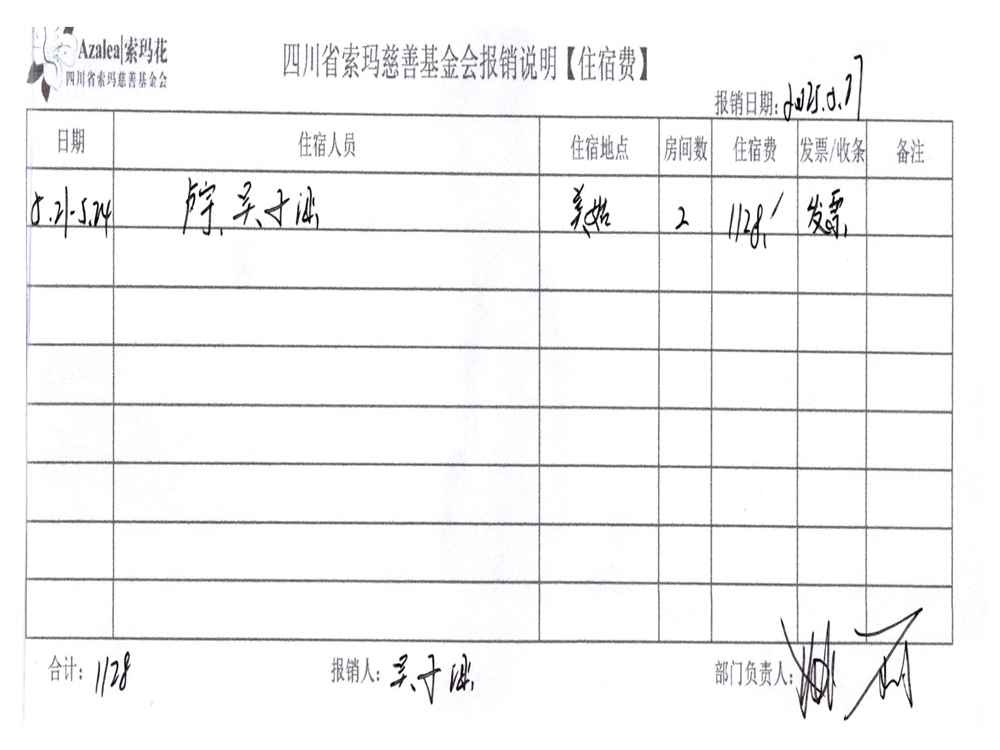 Azalea|索玛花
四川省索玛慈善基金会
四川省索玛慈善基金会报销说明【住宿费】
报销日期：2025.5.27
日期 住宿人员 住宿地点 房间数 住宿费 发票/收条 备注
5.21-5.24 卢宇、吴于 美姑 2 1128 发票
合计：1128 报销人：吴于 部门负责人：